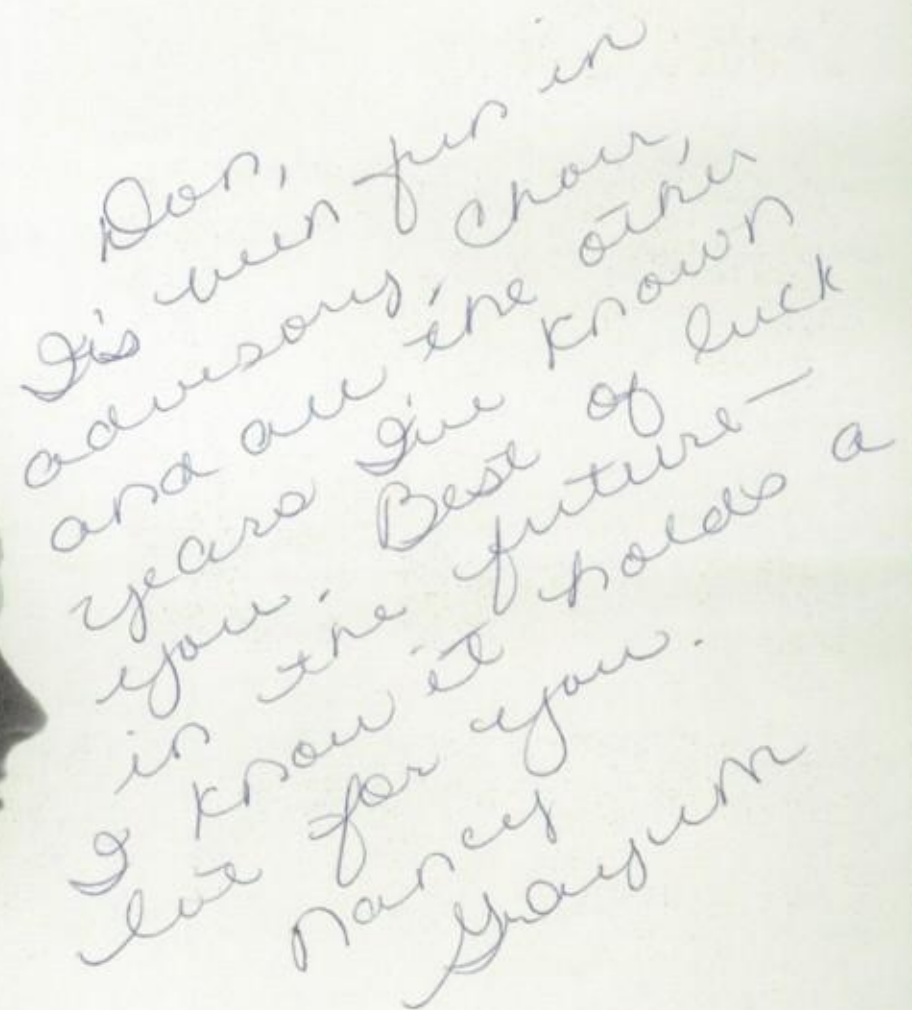 Don,
It's been fun in
advisory, choir,
and all the other
years I've known
you. Best of luck
in the future—
I know it holds a
lot for you.
Nancy